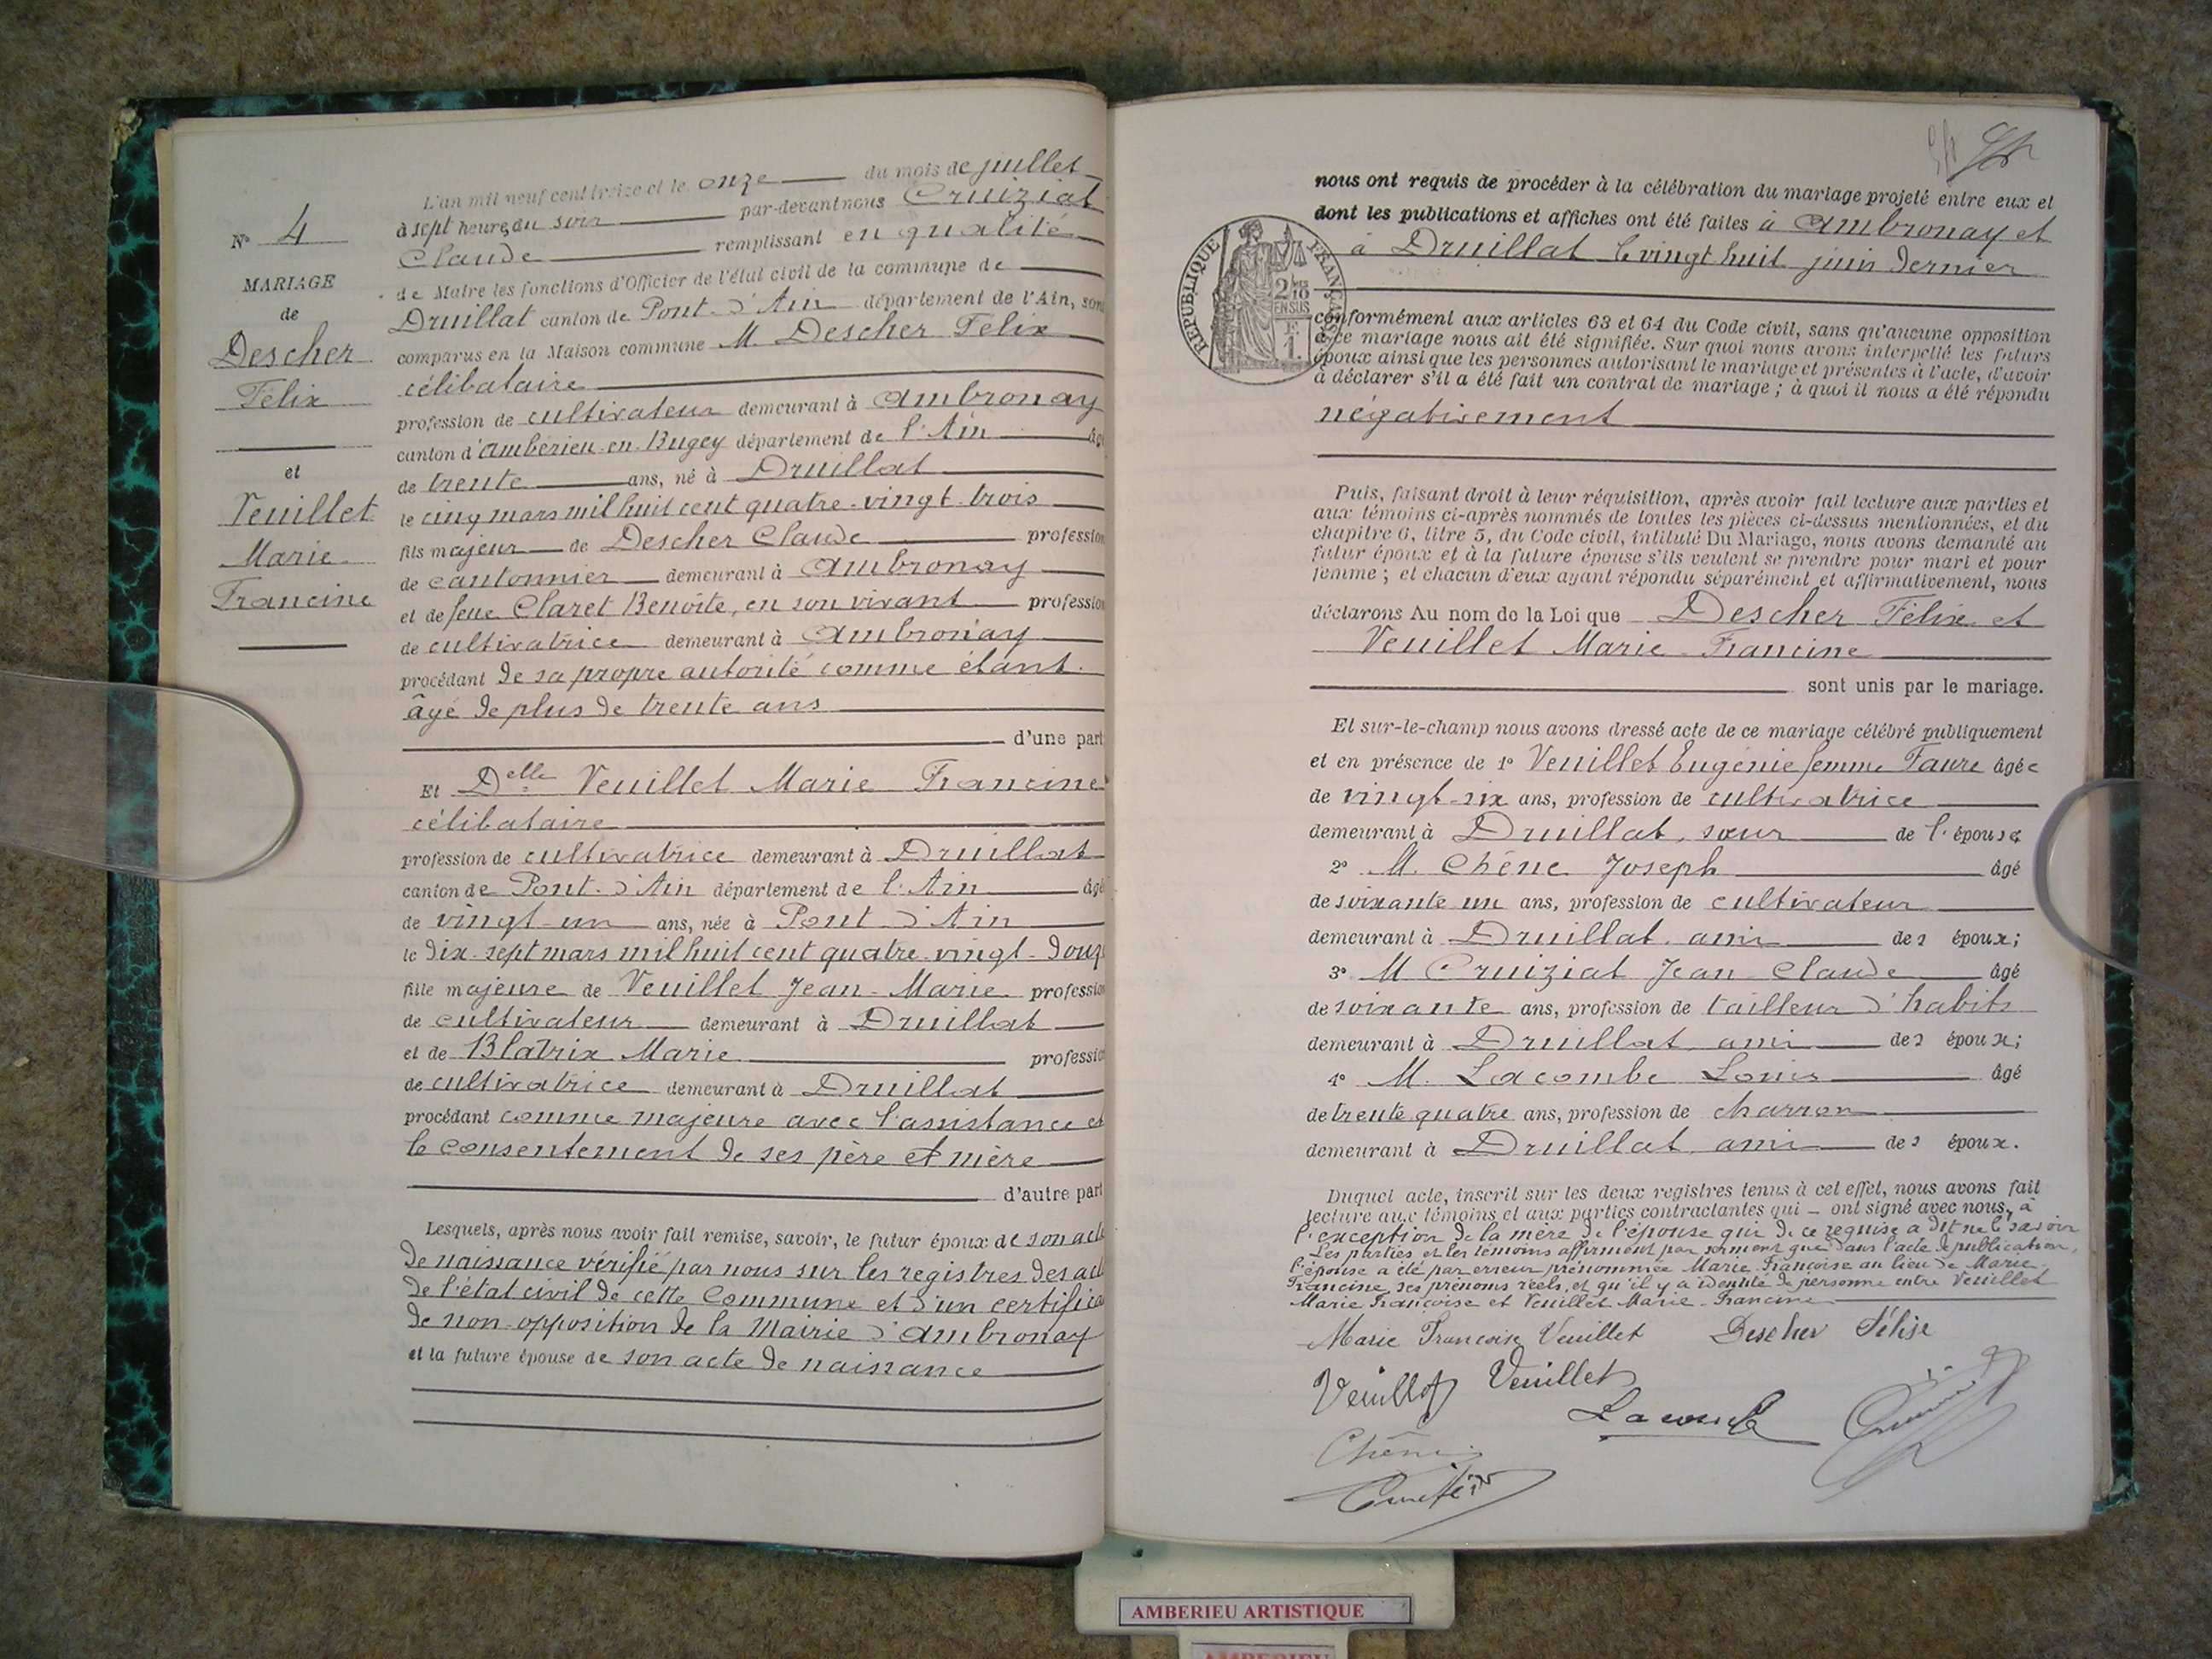 N° 4
MARIAGE
de
Descher
Félix
et
Veuillet
Marie
Francine
L'an mil neuf cent treize et le onze du mois de juillet
à sept heures du soir par-devant nous Cruiziat
Claude remplissant en qualité
de Maire les fonctions d'Officier de l'état civil de la commune de
Druillat canton de Pont-d'Ain département de l'Ain, sont
comparus en la Maison commune M. Descher Félix
célibataire
profession de cultivateur demeurant à Ambronay
canton d'Ambérieu-en-Bugey département de l'Ain âgé
de trente ans, né à Druillat
le cinq mars mil huit cent quatre-vingt-trois
fils majeur de Descher Claude profession
de cantonnier demeurant à Ambronay
et de feue Claret Benoîte, en son vivant profession
de cultivatrice demeurant à Ambronay
procédant de sa propre autorité comme étant
âgé de plus de trente ans
d'une part
Et Delle Veuillet Marie Francine
célibataire
profession de cultivatrice demeurant à Druillat
canton de Pont-d'Ain département de l'Ain âgé
de vingt-un ans, née à Pont d'Ain
le dix-sept mars mil huit cent quatre-vingt-douze
fille majeure de Veuillet Jean-Marie profession
de cultivateur demeurant à Druillat
et de Blatrix Marie profession
de cultivatrice demeurant à Druillat
procédant comme majeure avec l'assistance et
le consentement de ses père et mère
d'autre part
Lesquels, après nous avoir fait remise, savoir, le futur époux de son acte
de naissance vérifié par nous sur les registres des actes
de l'état civil de cette Commune et d'un certificat
de non-opposition de la Mairie d'Ambronay
et la future épouse de son acte de naissance
nous ont requis de procéder à la célébration du mariage projeté entre eux et
dont les publications et affiches ont été faites à Ambronay et
à Druillat le vingt huit juin dernier
RÉPUBLIQUE FRANÇAISE
2/10 EN SUS
1 F.
conformément aux articles 63 et 64 du Code civil, sans qu'aucune opposition
à ce mariage nous ait été signifiée. Sur quoi nous avons interpellé les futurs
époux ainsi que les personnes autorisant le mariage et présentes à l'acte, d'avoir
à déclarer s'il a été fait un contrat de mariage ; à quoi il nous a été répondu
négativement
Puis, faisant droit à leur réquisition, après avoir fait lecture aux parties et
aux témoins ci-après nommés de toutes les pièces ci-dessus mentionnées, et du
chapitre 6, titre 5, du Code civil, intitulé Du Mariage, nous avons demandé au
futur époux et à la future épouse s'ils veulent se prendre pour mari et pour
femme ; et chacun d'eux ayant répondu séparément et affirmativement, nous
déclarons Au nom de la Loi que Descher Félix et
Veuillet Marie-Francine
sont unis par le mariage.
Et sur-le-champ nous avons dressé acte de ce mariage célébré publiquement
et en présence de 1° Veuillet Eugénie femme Faure âgée
de vingt-six ans, profession de cultivatrice
demeurant à Druillat, sœur de l'épouse
2° M. Chêne Joseph âgé
de soixante un ans, profession de cultivateur
demeurant à Druillat, ami des époux;
3° M Cruiziat Jean-Claude âgé
de soixante ans, profession de tailleur d'habits
demeurant à Druillat ami des époux;
4° M. Lacombe Louis âgé
de trente quatre ans, profession de charron
demeurant à Druillat, ami des époux.
Duquel acte, inscrit sur les deux registres tenus à cet effet, nous avons fait
lecture aux témoins et aux parties contractantes qui ont signé avec nous, à
l'exception de la mère de l'épouse qui de ce requise a dit ne le savoir
Les parties et les témoins affirment par serment que dans l'acte de publication,
l'épouse a été par erreur prénommée Marie Françoise au lieu de Marie
Francine ses prénoms réels, et qu'il y a identité de personne entre Veuillet
Marie Françoise et Veuillet Marie-Francine
Marie Françoise Veuillet Descher Félise
Veuillet Veuillet
Lacombe
Chêne
AMBERIEU ARTISTIQUE
AMBERIEU